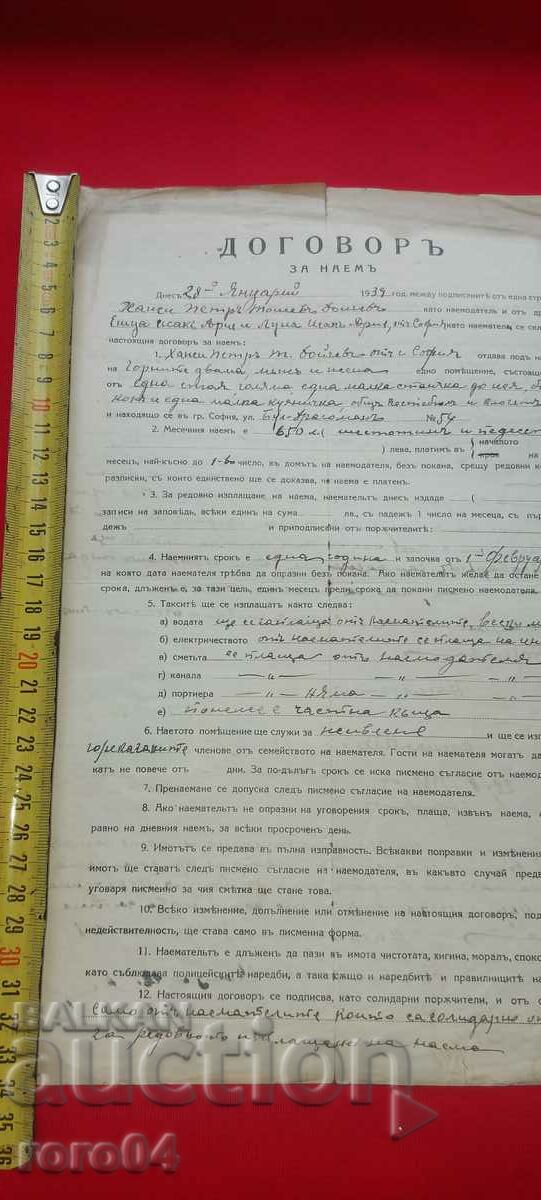 ДОГОВОРЪ
ЗА НАЕМЪ
Днесъ 28-и Януарий 1939 год. между подписанитѣ отъ една стр
Ханси Петръ Тошевъ Бойчевъ като наемодателъ и отъ др
Луна Исакъ отъ София като наематель се скл
настоящия договоръ за наемъ:
1. Ханси Петръ Т. Бойчевъ отъ София отдава подъ н
на Горнитѣ двама едно помѣщение, състояще
отъ една стая голяма една малка стаичка до нея,
и една малка кухничка, общъ
и находящо се въ гр. София, ул. Бул. Драгоманъ №54
2. Месечния наемъ е 650 лв (шестотинъ и педесе
) лева, платимъ въ началото
края
месецъ, най-късно до 1-во число, въ домътъ на наемодателя, безъ покана, срещу редовни к
разписки, съ които единствено ще се доказва, че наема е платенъ.
3. За редовно изплащане на наема, наемательтъ днесъ издаде (
записи на заповѣдь, всѣки единъ на сума лв., съ падежъ 1 число на месеца, съ първ
дежъ и приподписани отъ поръчителитѣ:
4. Наемниятъ срокъ е една година и започва отъ 1-и Февруа
на която дата наемателя трѣбва да опразни безъ покана. Ако наемательтъ желае да остане
срока, длъженъ е, за тази цель, единъ месецъ преди срока да покани писмено наемодателя.
5. Таксите ще се изплащатъ както следва:
а) водата ще се заплаща отъ наемателитѣ,
б) електричеството отъ наемателитѣ се плаща
в) сметьта се плаща отъ наемодателя
г) канала — „ — — „ — — „ —
д) портиера — „ — няма — „ — — „ —
е) понеже е частна къща
6. Наетото помѣщение ще служи за живѣене и ще се изп
горекаченитѣ членове отъ семейството на наемателя. Гости на наемателя могатъ да
катъ не повече отъ дни. За по-дългъ срокъ се иска писмено съгласие отъ наемод
7. Пренаемане се допуска следъ писмено съгласие на наемодателя.
8. Ако наемательтъ не опразни на уговорения срокъ, плаща, извънъ наема,
равно на дневния наемъ, за всѣки просроченъ день.
9. Имотътъ се предава въ пълна изправность. Всѣкакви поправки и изменения
имотъ ще ставатъ следъ писмено съгласие на наемодателя, въ какъвто случай предв
уговаря писменно за чия смѣтка ще стане това.
10. Всѣко изменение, допълнение или отменение на настоящия договоръ, под
недействителность, ще става само въ писменна форма.
11. Наемательтъ е длъженъ да пази въ имота чистотата, хигиена, моралъ, спок
като съблюдава полицейскитѣ наредби, а така също и наредбитѣ и правилницитѣ на
12. Настоящия договоръ се подписва, като солидарни поръчители, и отъ с
само отъ наемателитѣ които са солидарно
за редовното изплащане на наема
BALKAN
auction
roro04
2 3 4 5 6 7 8 9 10 11 12 13 14 15 16 17 18 19 20 21 22 23 24 25 26 27 28 29 30 31 32 33 34 35 36